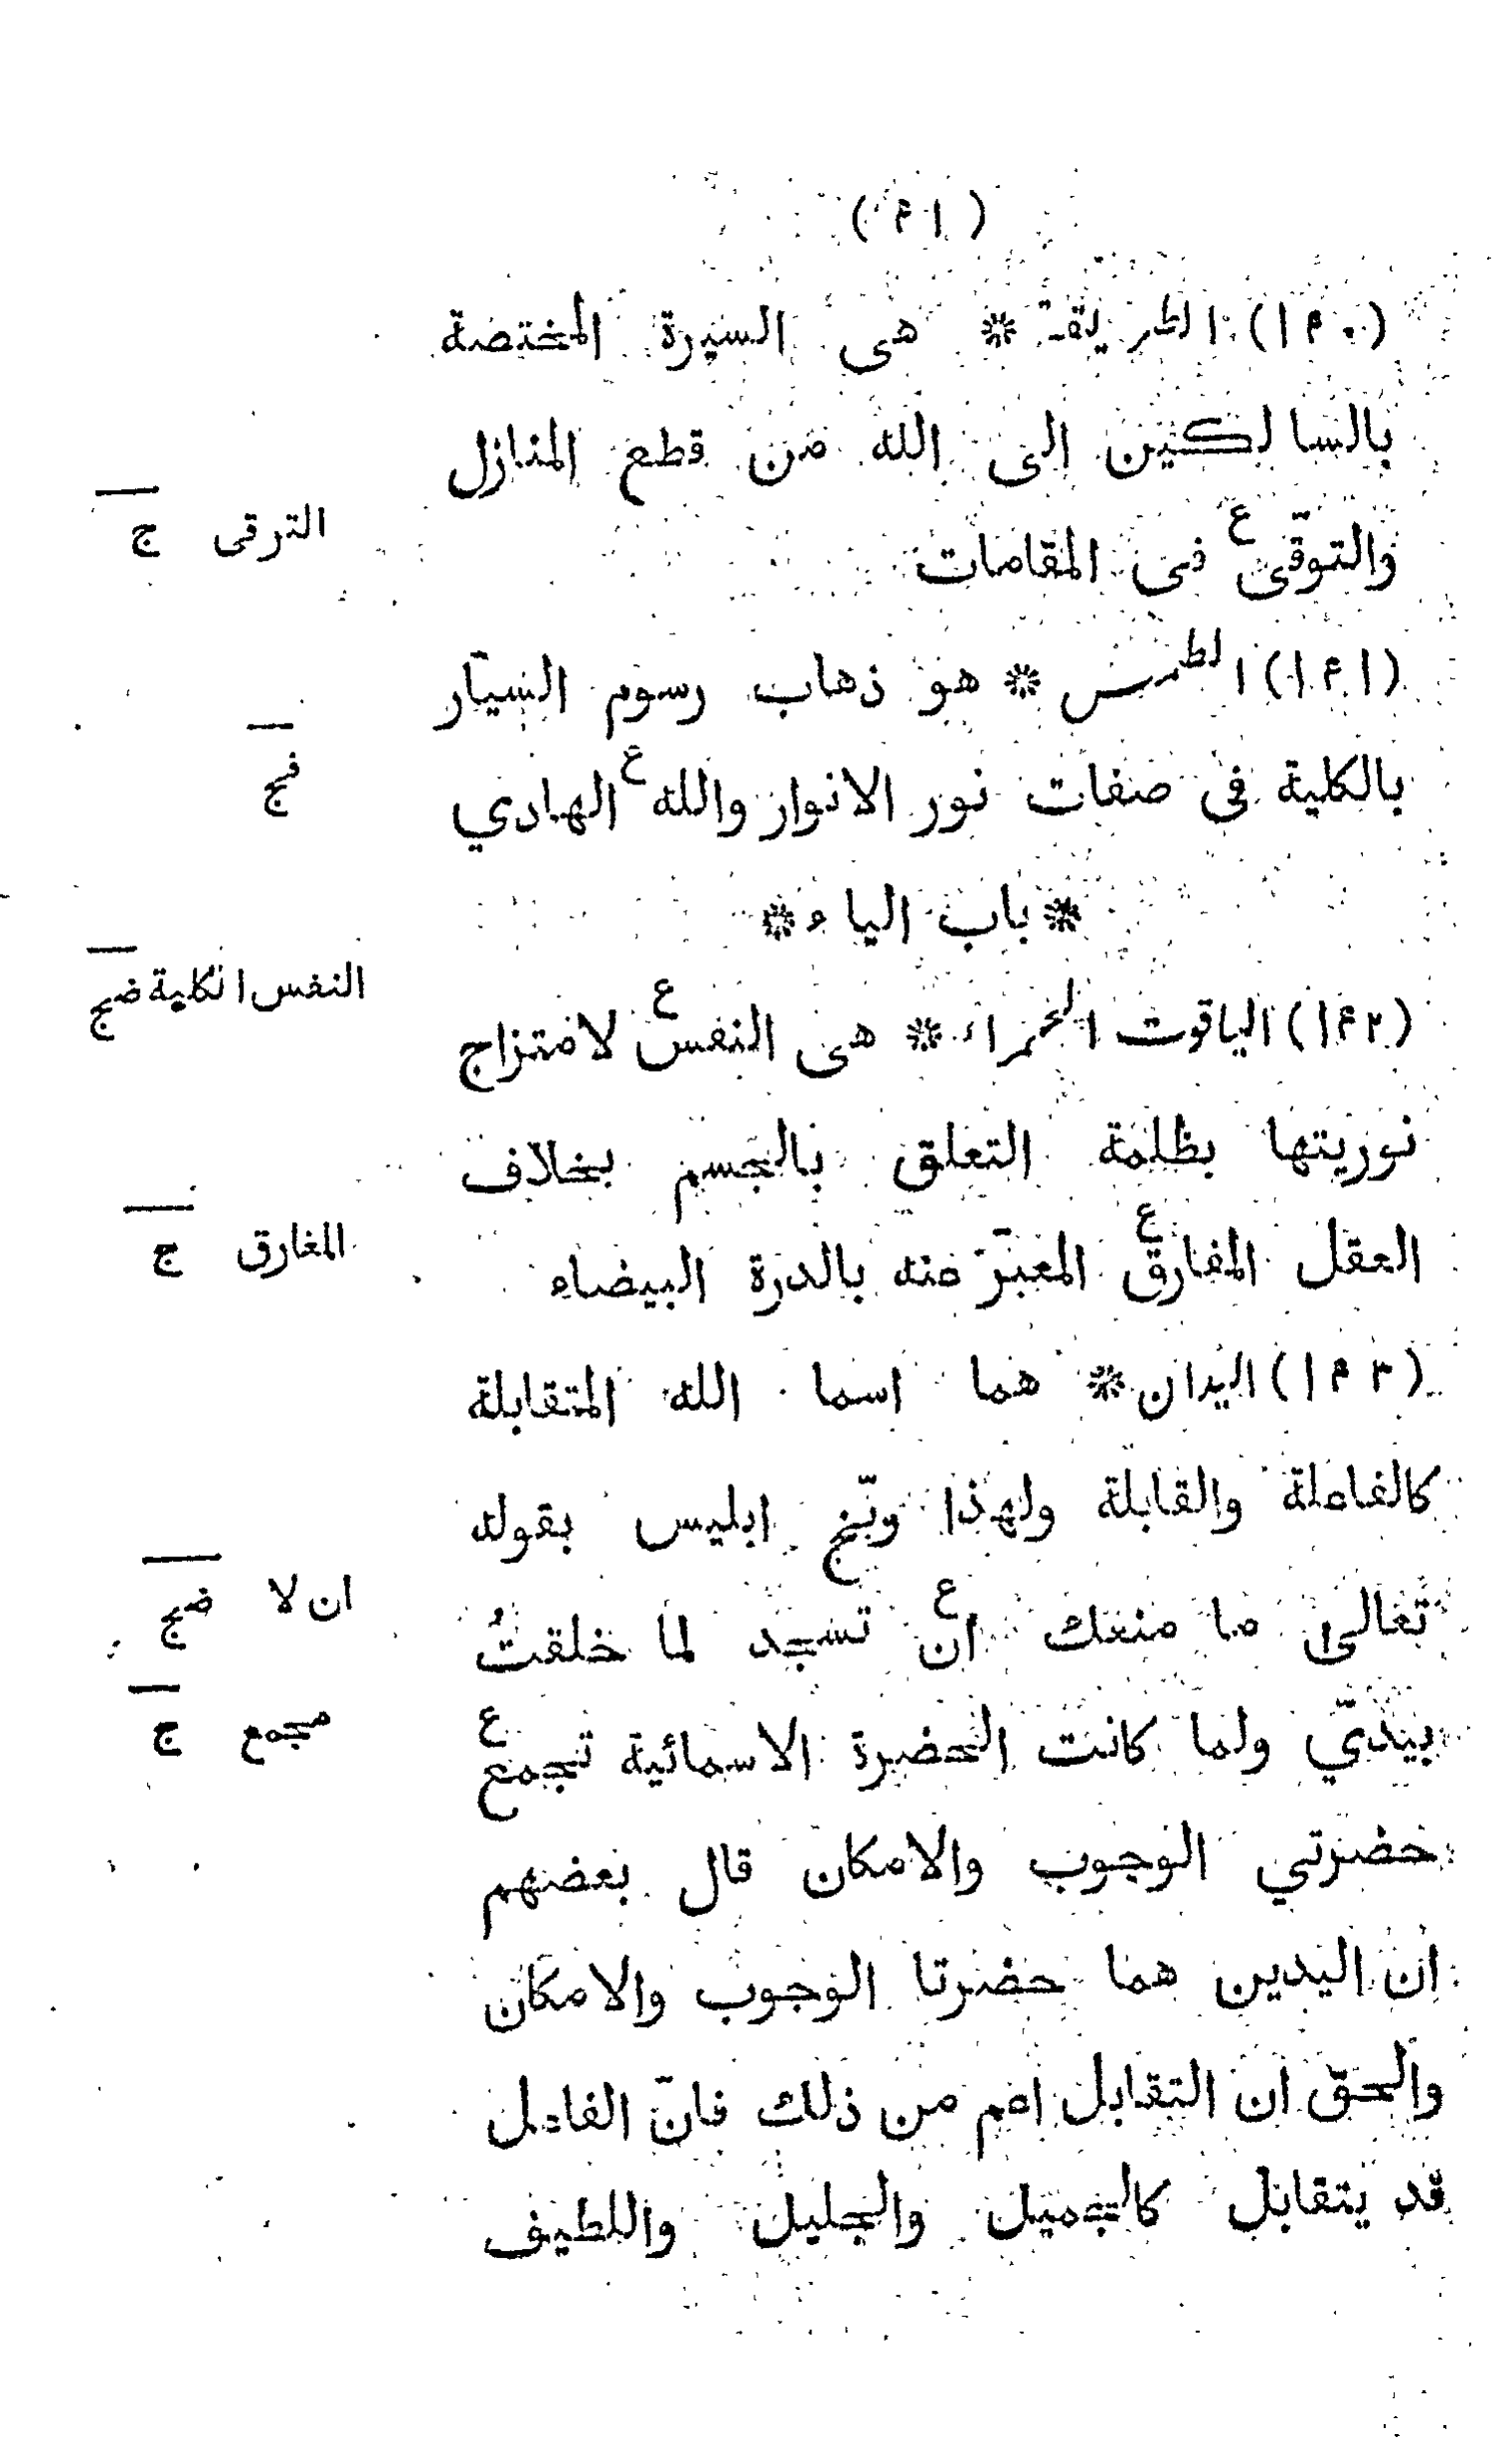 (۴۱)
(۱۴۰) الطريقة * هى السيرة المختصة
بالسالكين الى الله من قطع المنازل
والتوقّى ع فى المقامات
الترقى ج
(۱۴۱) الطمس * هو ذهاب رسوم السيّار
بالكلية فى صفات نور الانوار والله ع الهادي
فج
* باب الياء *
(۱۴۲) الياقوت الحمراء * هى النفس ع لامتزاج
النفس الكلية ضج
نوريتها بظلمة التعلق بالجسم بخلاف
العقل المفارق ع المعبّر منه بالدرة البيضاء
المغارق ج
(۱۴۳) اليدان * هما اسما الله المتقابلة
كالفاعلة والقابلة ولهذا وبّخ ابليس بقوله
تعالى ما منعك ان ع تسجد لما خلقتُ
ان لا ضج
بيديّ ولما كانت الحضرة الاسمائية تجمع ع
مجمع ج
حضرتي الوجوب والامكان قال بعضهم
ان اليدين هما حضرتا الوجوب والامكان
والحقّ ان التقابل اعم من ذلك فانّ الفاعل
قد يتقابل كالجميل والجليل واللطيف